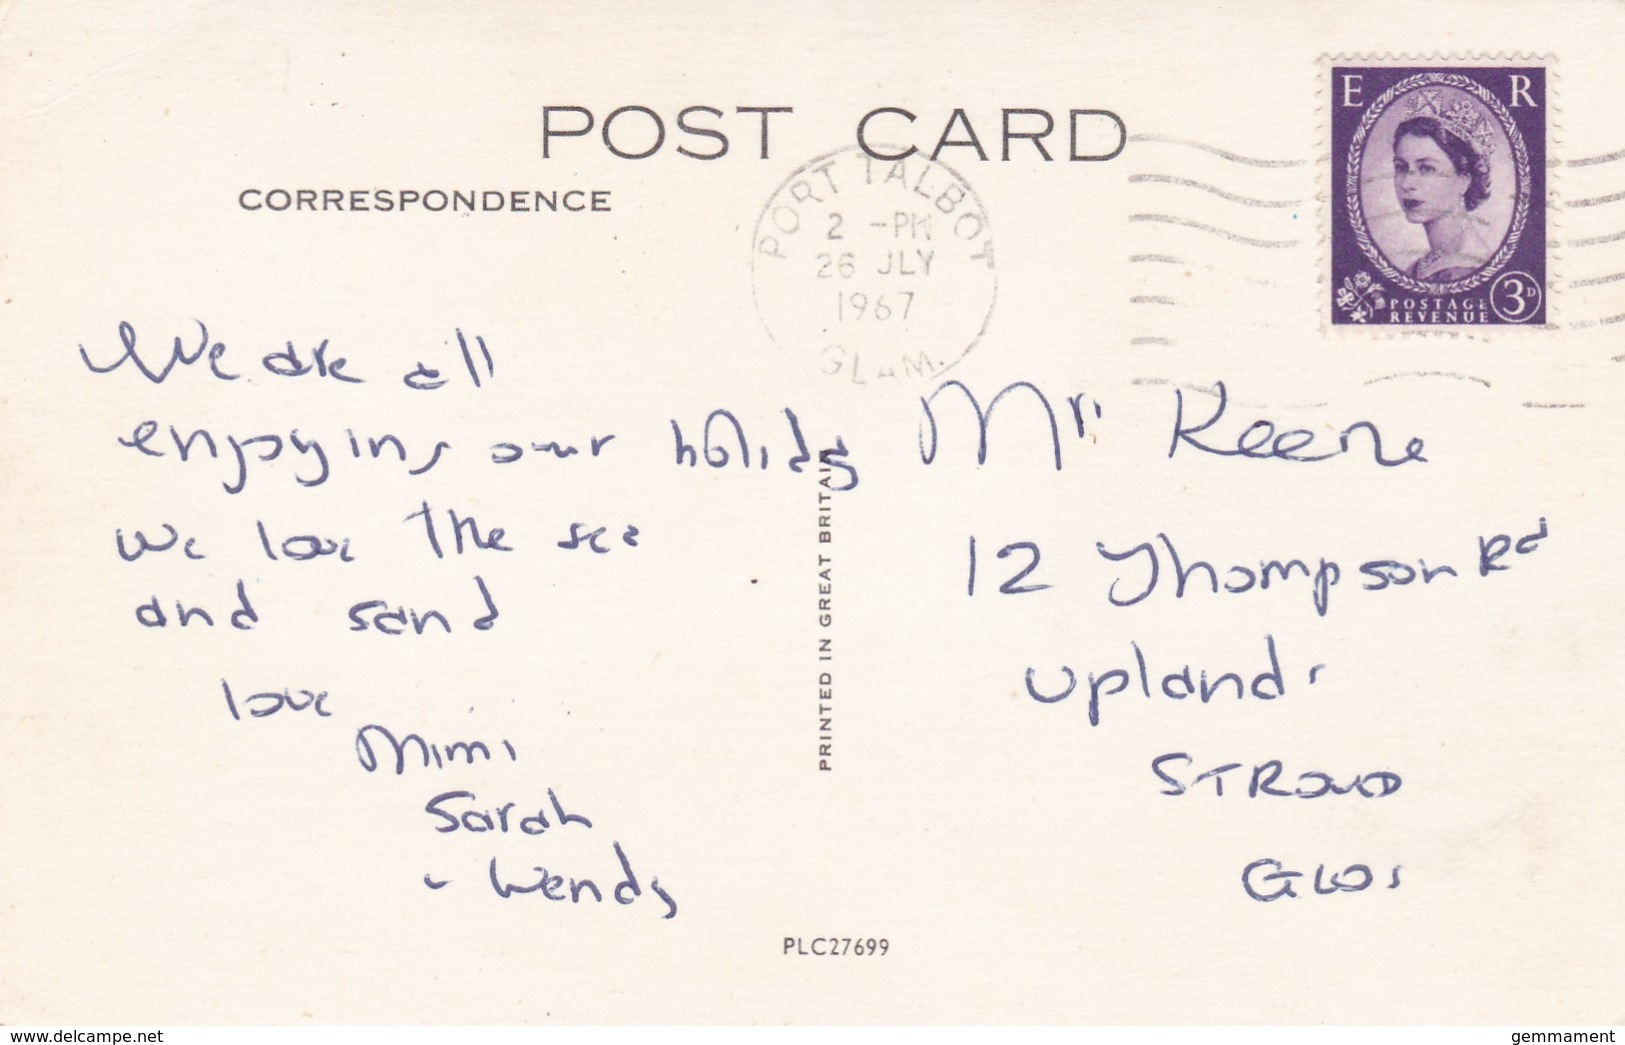 POST CARD
CORRESPONDENCE
E R
POSTAGE
REVENUE
3D
PORT TALBOT
2 -PM
26 JLY
1967
GLAM.
We are all
enjoying our holiday
we love the sea
and sand
love
Mimi
Sarah
- Wendy
PRINTED IN GREAT BRITAIN
Keene
12 Thompson Rd
Uplands
STROUD
GLOS
PLC27699
www.delcampe.net
gemmament